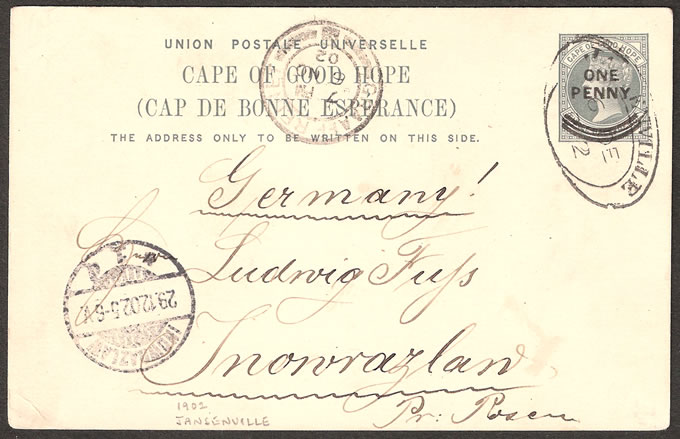 UNION POSTALE UNIVERSELLE
CAPE OF GOOD HOPE
(CAP DE BONNE ESPÉRANCE)
THE ADDRESS ONLY TO BE WRITTEN ON THIS SIDE.
CAPE OF GOOD HOPE
ONE
PENNY
VILLE
Germany!
Ludwig Fuss
Inowrazlaw
Pr: Posen
29.12.02.5-6
1902
JANSENVILLE